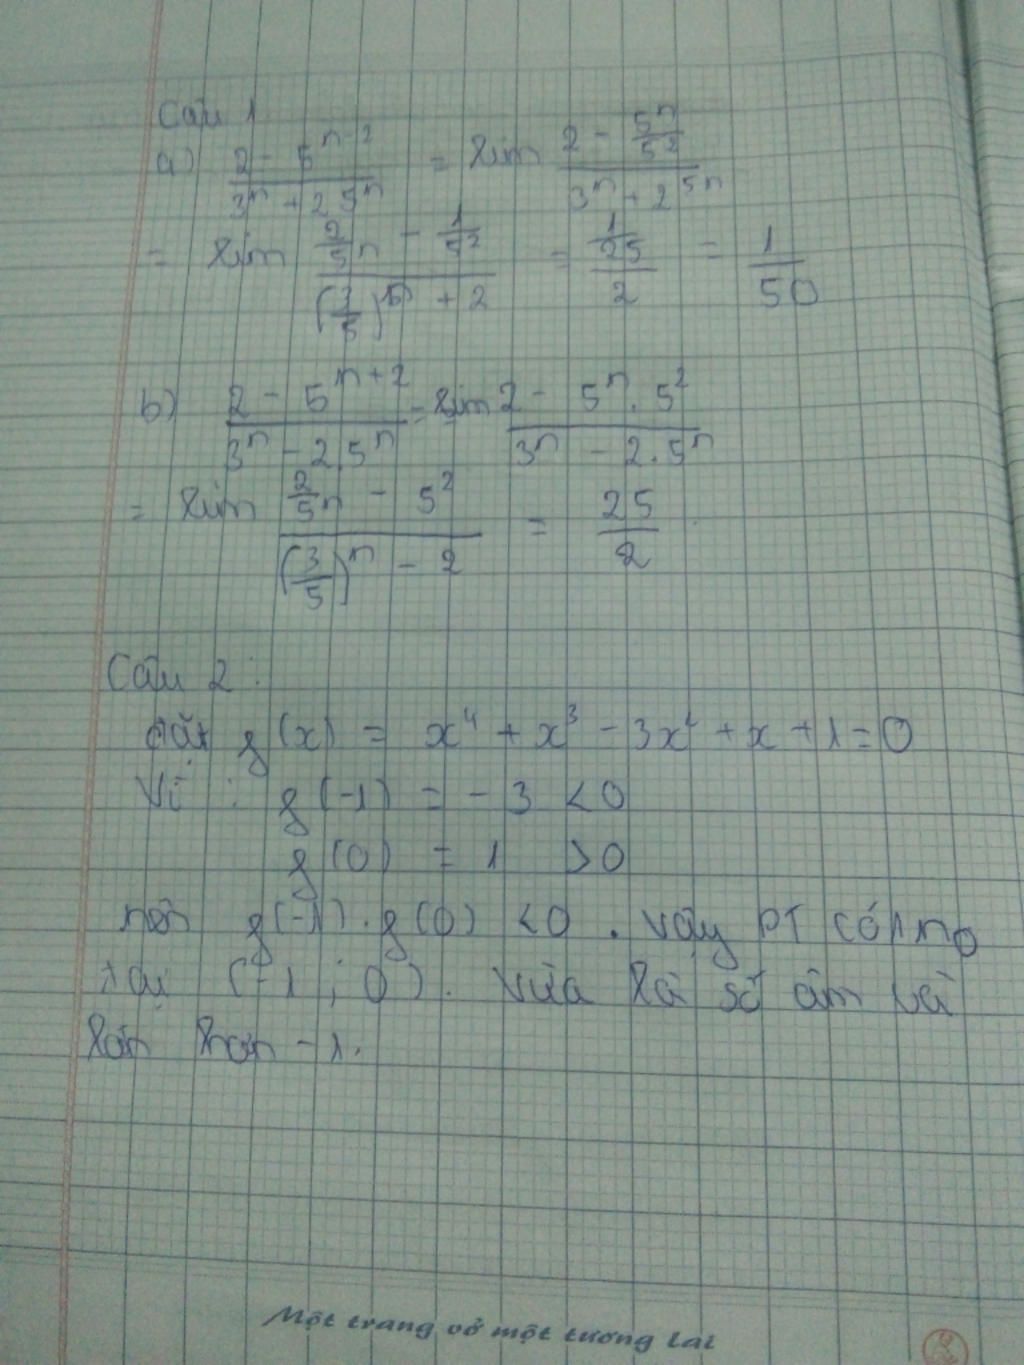 Câu 1
a) \frac{2 - 5^{n-2}}{3^n + 2 5^n} = lim \frac{2 - \frac{5^n}{5^2}}{3^n + 2^{5n}}
= lim \frac{\frac{2}{5^n} - \frac{1}{5^2}}{(\frac{3}{5})^n + 2} = \frac{\frac{1}{25}}{2} = \frac{1}{50}
b) \frac{2 - 5^{n+2}}{3^n - 2 5^n} = lim \frac{2 - 5^n . 5^2}{3^n - 2 . 5^n}
= lim \frac{\frac{2}{5^n} - 5^2}{(\frac{3}{5})^n - 2} = \frac{25}{2}
Câu 2 :
đặt f(x) = x^4 + x^3 - 3x^2 + x + 1 = 0
Vì : f(-1) = - 3 < 0
f(0) = 1 > 0
nên f(-1) . f(0) < 0 . Vậy PT có 1 no
tại (-1 ; 0). Vừa là số âm và
lớn hơn - 1.
Một trang vở một tương lai